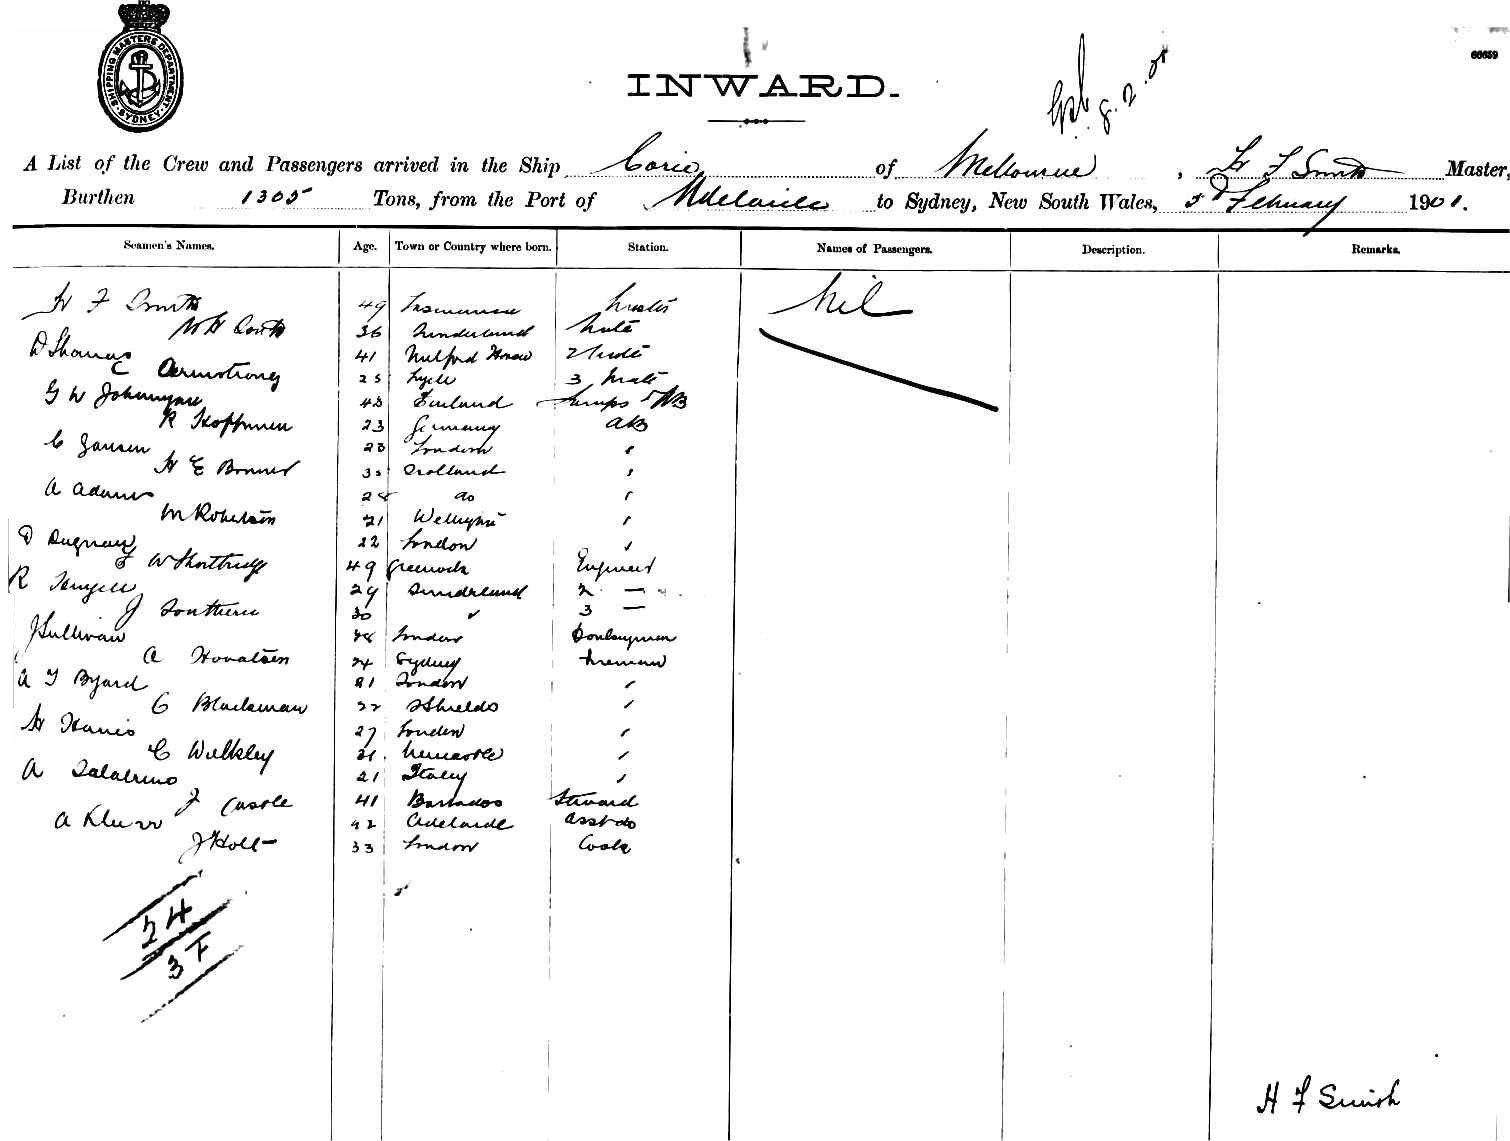 SHIPPING MASTERS DEPARTMENT SYDNEY
60659
INWARD.
8.2.01
A List of the Crew and Passengers arrived in the Ship Corio of Melbourne, H F Smith Master,
Burthen 1305 Tons, from the Port of Adelaide to Sydney, New South Wales, 5 February 1901.
Seamen's Names. Age. Town or Country where born. Station. Names of Passengers. Description. Remarks.
H F Smith 49 Tasmania Master Nil
36 Sunderland Mate
D Thomas 41 Milford Haven 2 Mate
C Armstrong 25 3 Mate
G W 48 Finland Lamps & AB
R Hoffman 23 Germany AB
C Jansen London "
H E 35 "
A Adams do "
M Robertson 21 "
22 London "
49 Greenock Engineer
R 29 Sunderland 2 — "
J 30 " 3 —
J Sullivan London Donkeyman
A 24 Sydney Fireman
A J Byard 21 London "
C Blackman 22 S Shields "
H Harris 27 London "
C Walkley Newcastle "
A 21 Italy "
J Castle 41 Barbados Steward
A 42 Adelaide Asst do
J Holt 33 London Cook
24
37
H F Smith